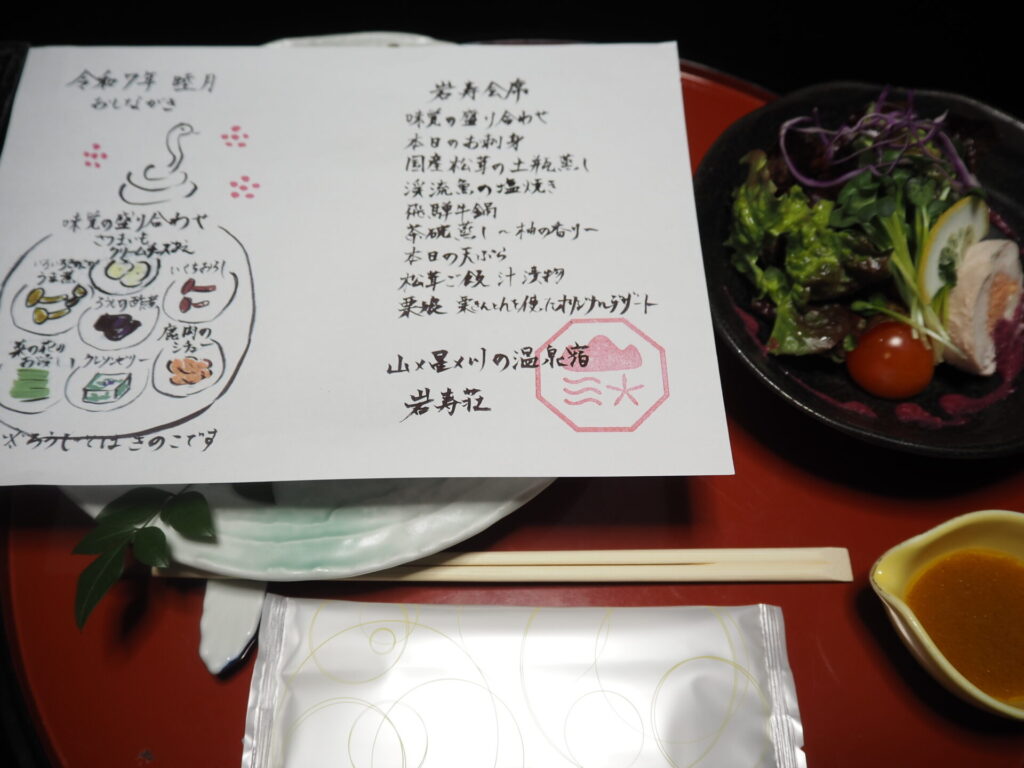 令和7年 睦月
おしながき
味覚の盛り合わせ
さつまいも
クリームチーズあえ
いくちおろし
ろうじの酢煮
鹿肉の
シチュー
菜の花の
お浸し
クレソンゼリー
※ろうじとは きのこです
岩寿会席
味覚の盛り合わせ
本日のお刺身
国産松茸の土瓶蒸し
渓流魚の塩焼き
飛騨牛鍋
茶碗蒸し～柚の香り～
本日の天ぷら
松茸ご飯 汁 漬物
栗娘 栗きんとんを使ったオリジナルデザート
山×星×川の温泉宿
岩寿荘